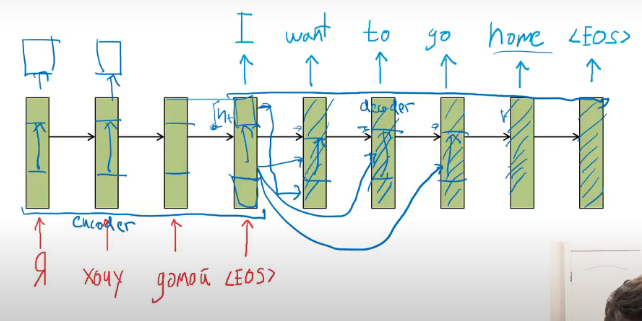 I want to go home <EOS>
decoder
h_t
encoder
Я хочу домой <EOS>